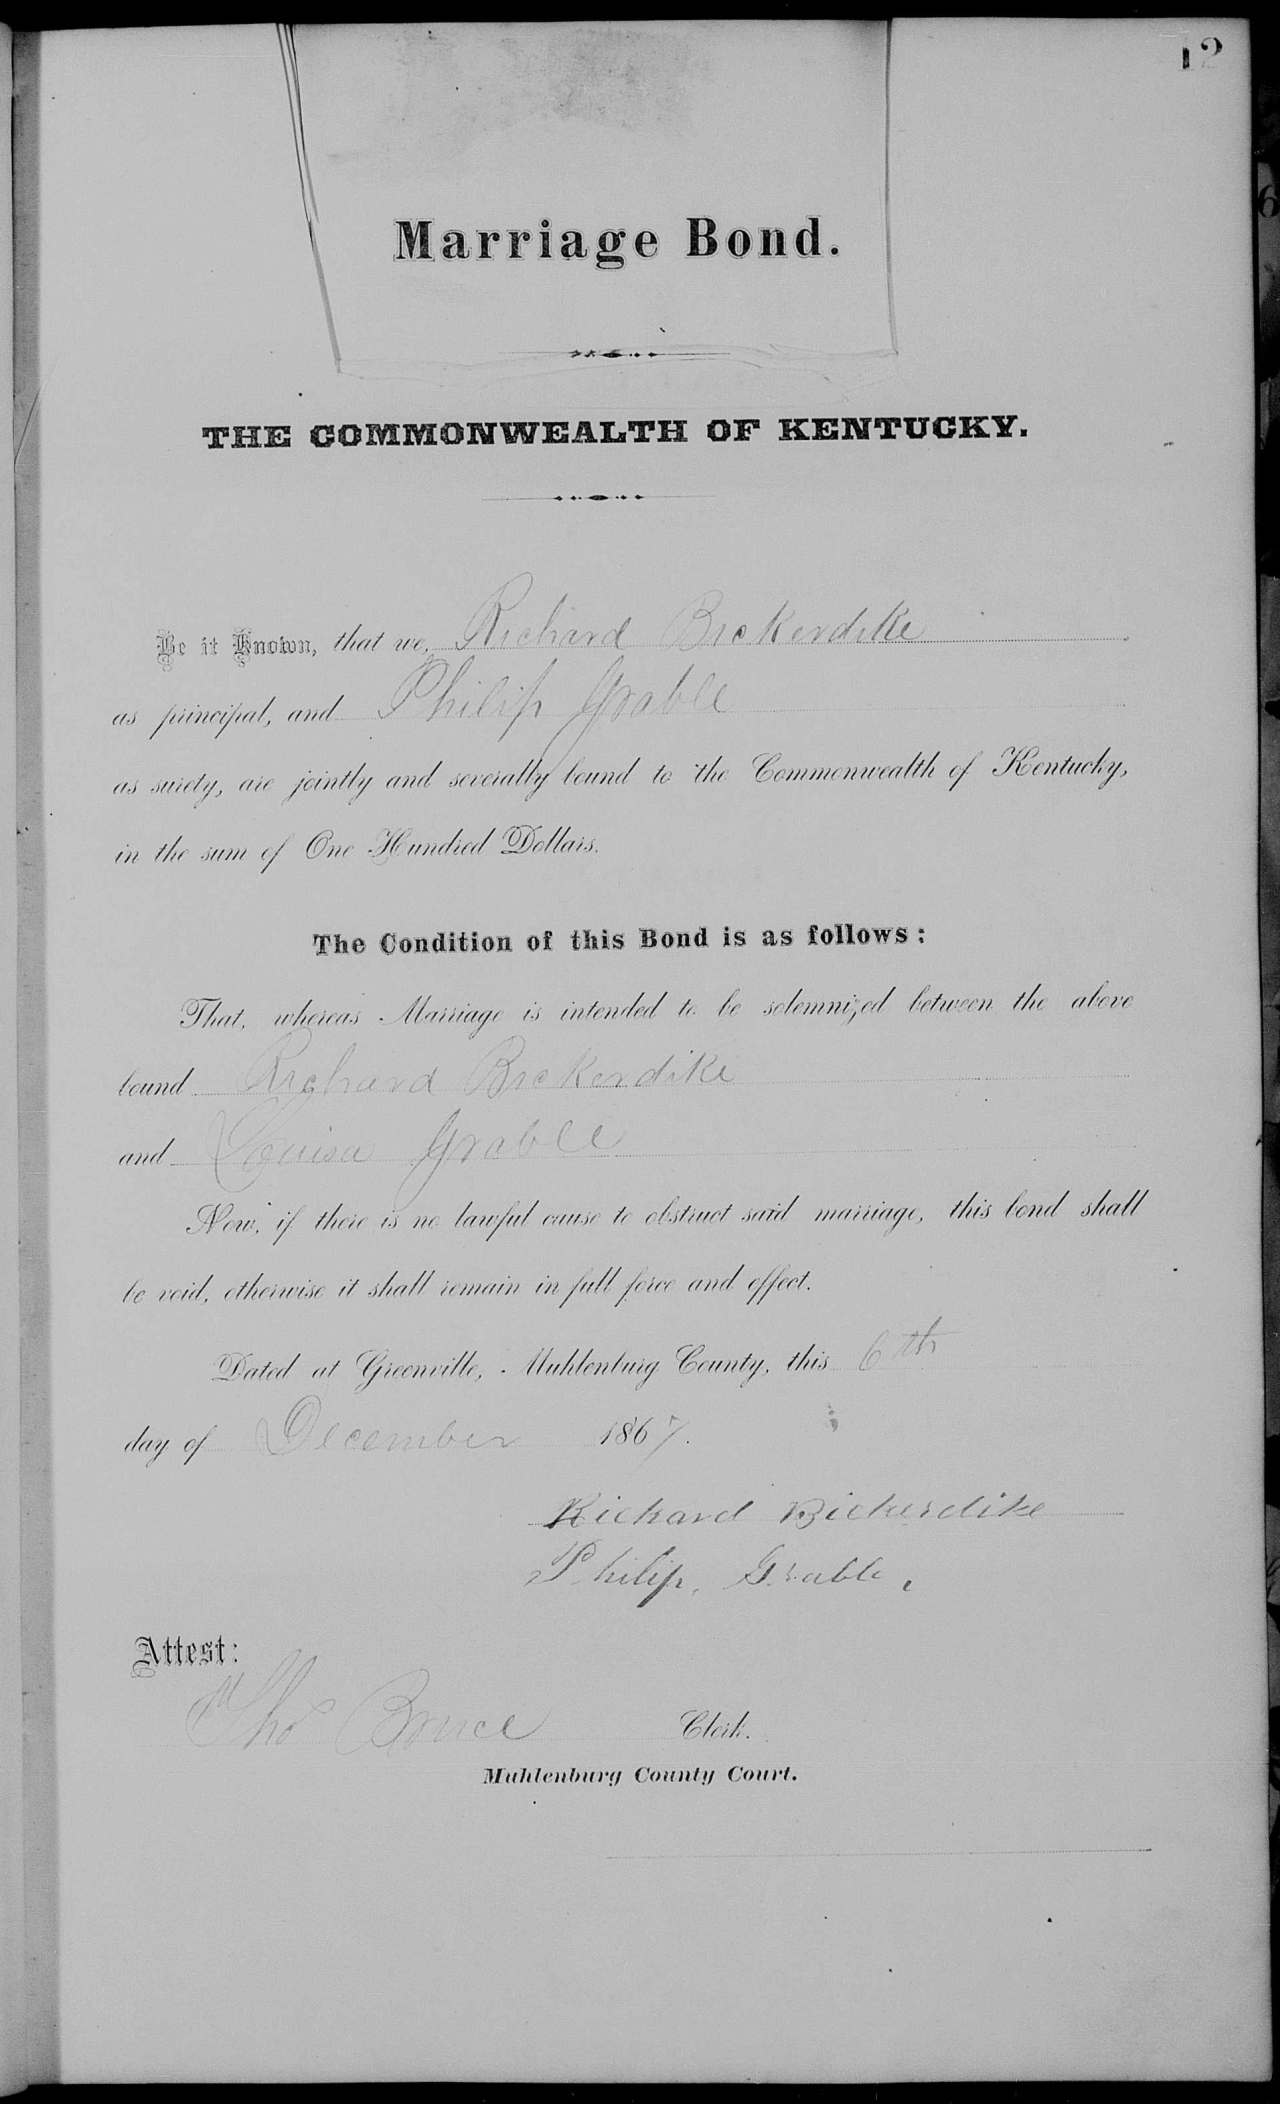 12
Marriage Bond.
THE COMMONWEALTH OF KENTUCKY.
Be it Known, that we, Richard Bickerdike
as principal, and Philip Grable
as surety, are jointly and severally bound to the Commonwealth of Kentucky,
in the sum of One Hundred Dollars.
The Condition of this Bond is as follows:
That, whereas Marriage is intended to be solemnized between the above
bound Richard Bickerdike
and Louisa Grable
Now, if there is no lawful cause to obstruct said marriage, this bond shall
be void, otherwise it shall remain in full force and effect.
Dated at Greenville, Muhlenburg County, this 6th
day of December 1867.
Richard Bickerdike
Philip, Grable,
Attest:
Tho Bruce Clerk.
Muhlenburg County Court.